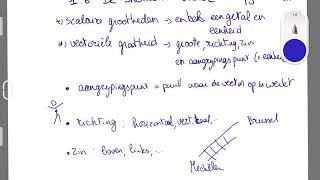 *) scalaire grootheden → enkel een getal en
eenheid
*) vectoriële grootheid → grootte, richting, zin
en aangrijpingspunt (+ eenheid)
• aangrijpingspunt = punt waar de vector op inwerkt
• richting: horizontaal, verticaal, ...
Brussel
• zin: boven, links, ...
Mechelen